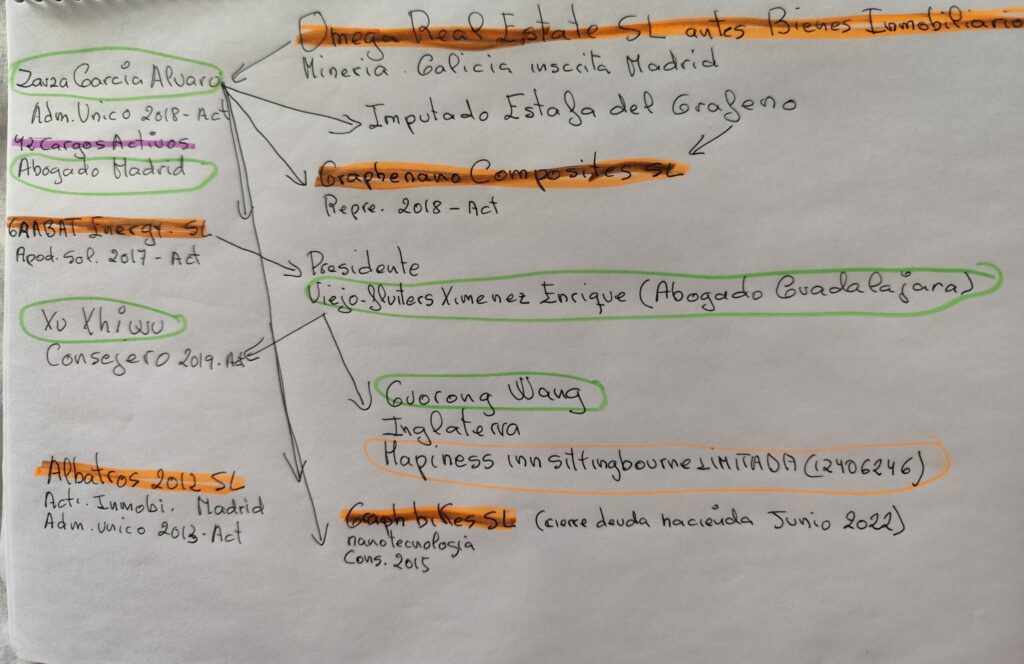 Omega Real Estate SL antes Bienes Inmobiliario
Mineria. Galicia inscrita Madrid
Zarza García Alvaro
Adm. Unico 2018 - Act
42 Cargos Activos
Abogado Madrid
Imputado Estafa del Grafeno
Graphenano Composites SL
Repre. 2018 - Act
GRABAT Energy. SL
Apod. Sol. 2017 - Act
Presidente
Viejo-fluiters Ximenez Enrique (Abogado Guadalajara)
Xu Xhiwu
Consejero 2019. Act
Guorong Wang
Inglaterra
Hapiness inn sittingbourne LIMITADA (12406246)
Albatros 2012 SL
Act. Inmobi. Madrid
Adm. unico 2013 - Act
Graph bikes SL (cierre deuda hacienda Junio 2022)
nanotecnologia
Cons. 2015